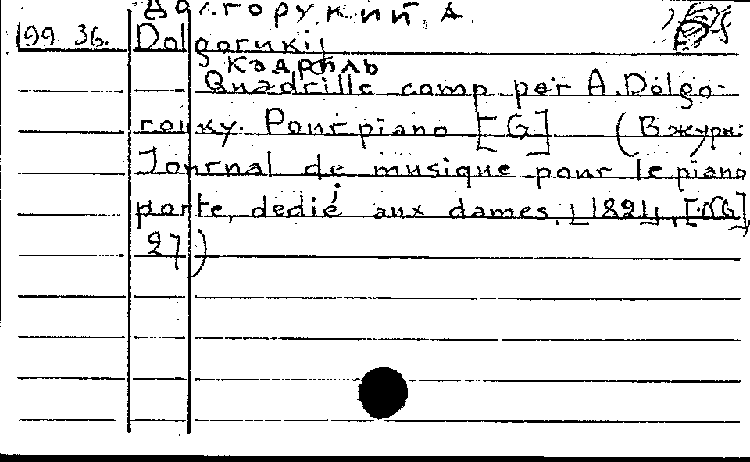 Долгорукий, А
199 36. Dolgorukij
Кадриль
Quadrille comp per A. Dolgo-
rouky. Pour piano [G] (В журн:
Journal de musique pour le piano
forte, dedié aux dames, [182],
27)